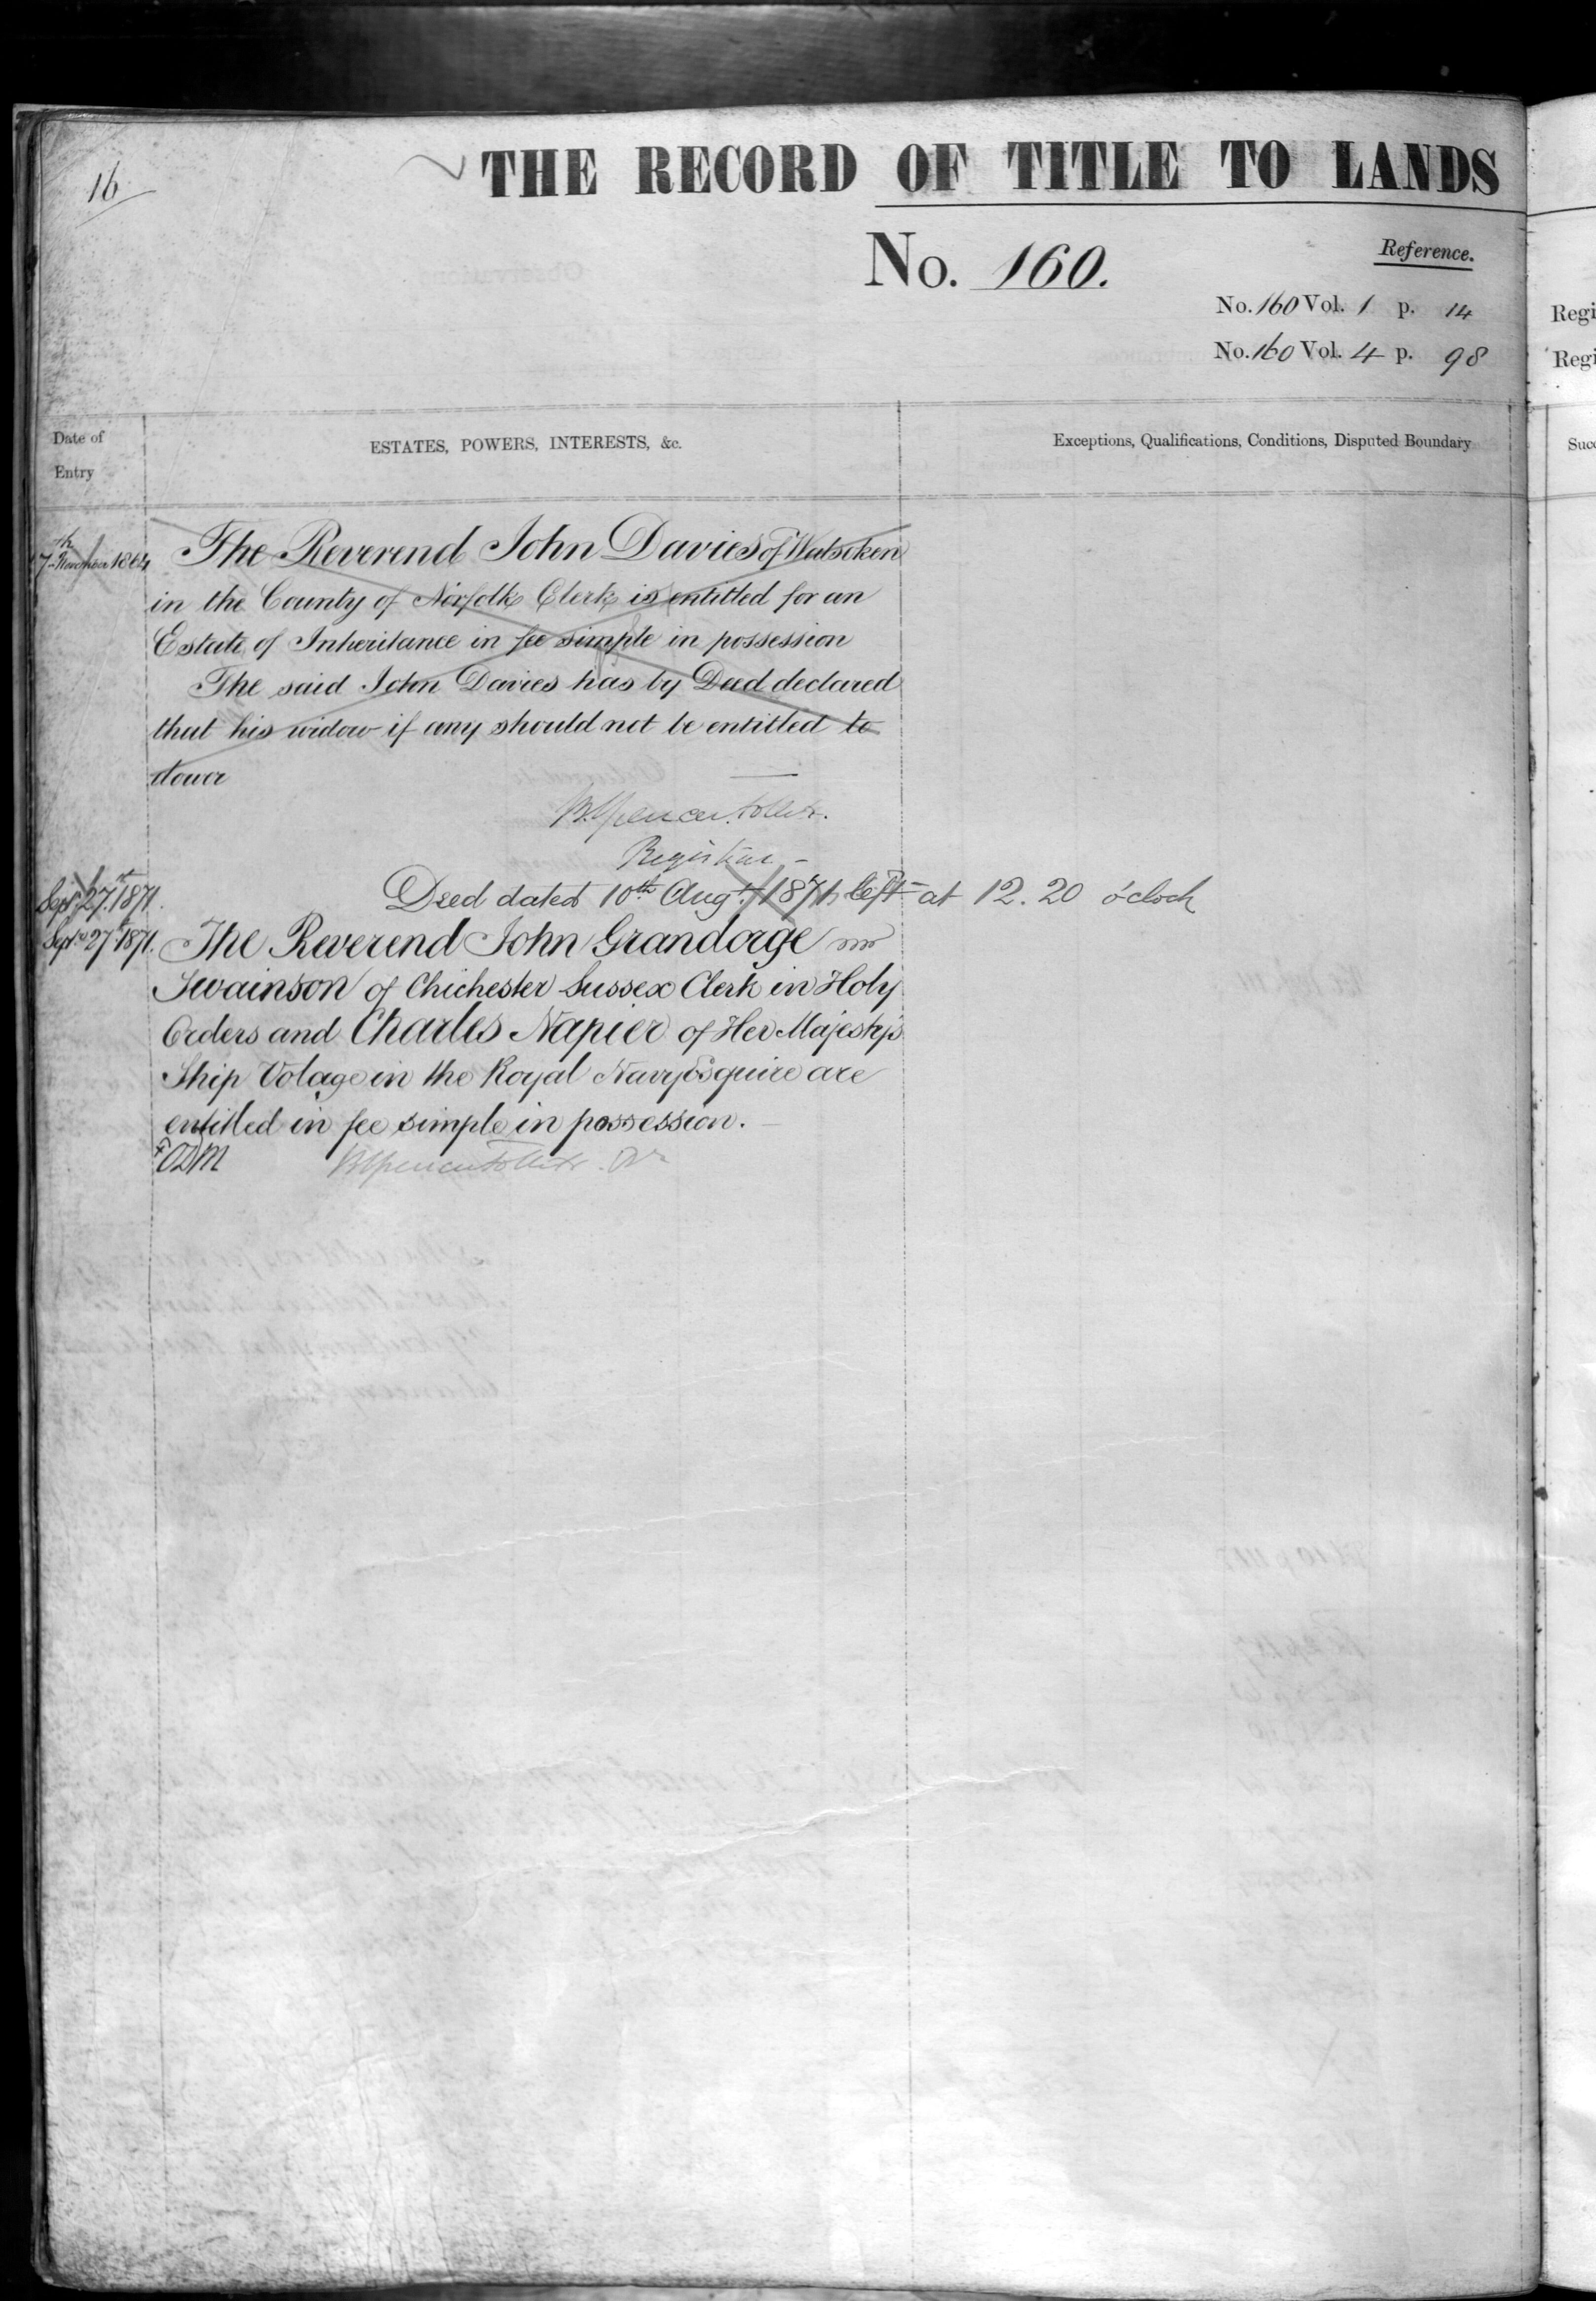 16
THE RECORD OF TITLE TO LANDS
No. 160.
Reference.
No. 160 Vol. 1 p. 14
No. 160 Vol. 4 p. 98
Regi
Regi
Date of Entry
ESTATES, POWERS, INTERESTS, &c.
Exceptions, Qualifications, Conditions, Disputed Boundary
Succ
7th November 1864
The Reverend John Davies of Walsoken
in the County of Norfolk Clerk is entitled for an
Estate of Inheritance in fee simple in possession
The said John Davies has by Deed declared
that his widow if any should not be entitled to
dower
B. Spencer Follett.
Registrar
Sept 27th 1871
Deed dated 10th Augt. 1871 left at 12.20 o'clock
Sept 27th 1871.
The Reverend John Grandorge
Swainson of Chichester Sussex Clerk in Holy
Orders and Charles Napier of Her Majesty's
Ship Volage in the Royal Navy Esquire are
entitled in fee simple in possession.
B Spencer Follett